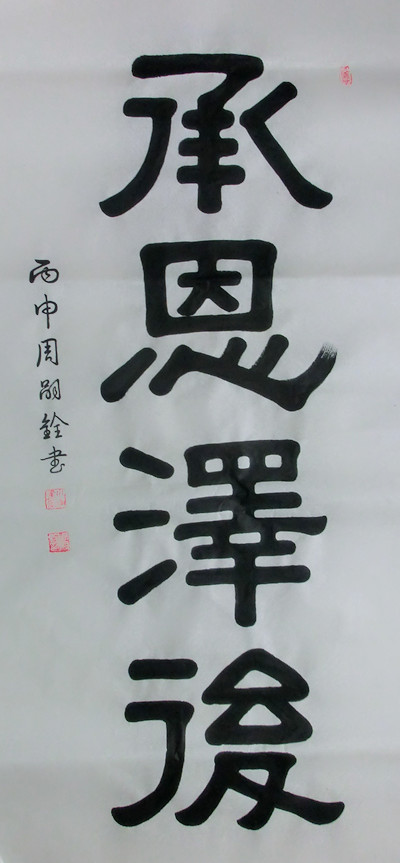 承恩澤後
丙申周嗣銓書